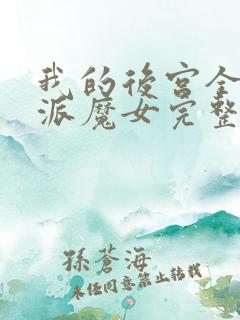 我的後宮全
派魔女完整
孫蒼海
未任同意禁止转载